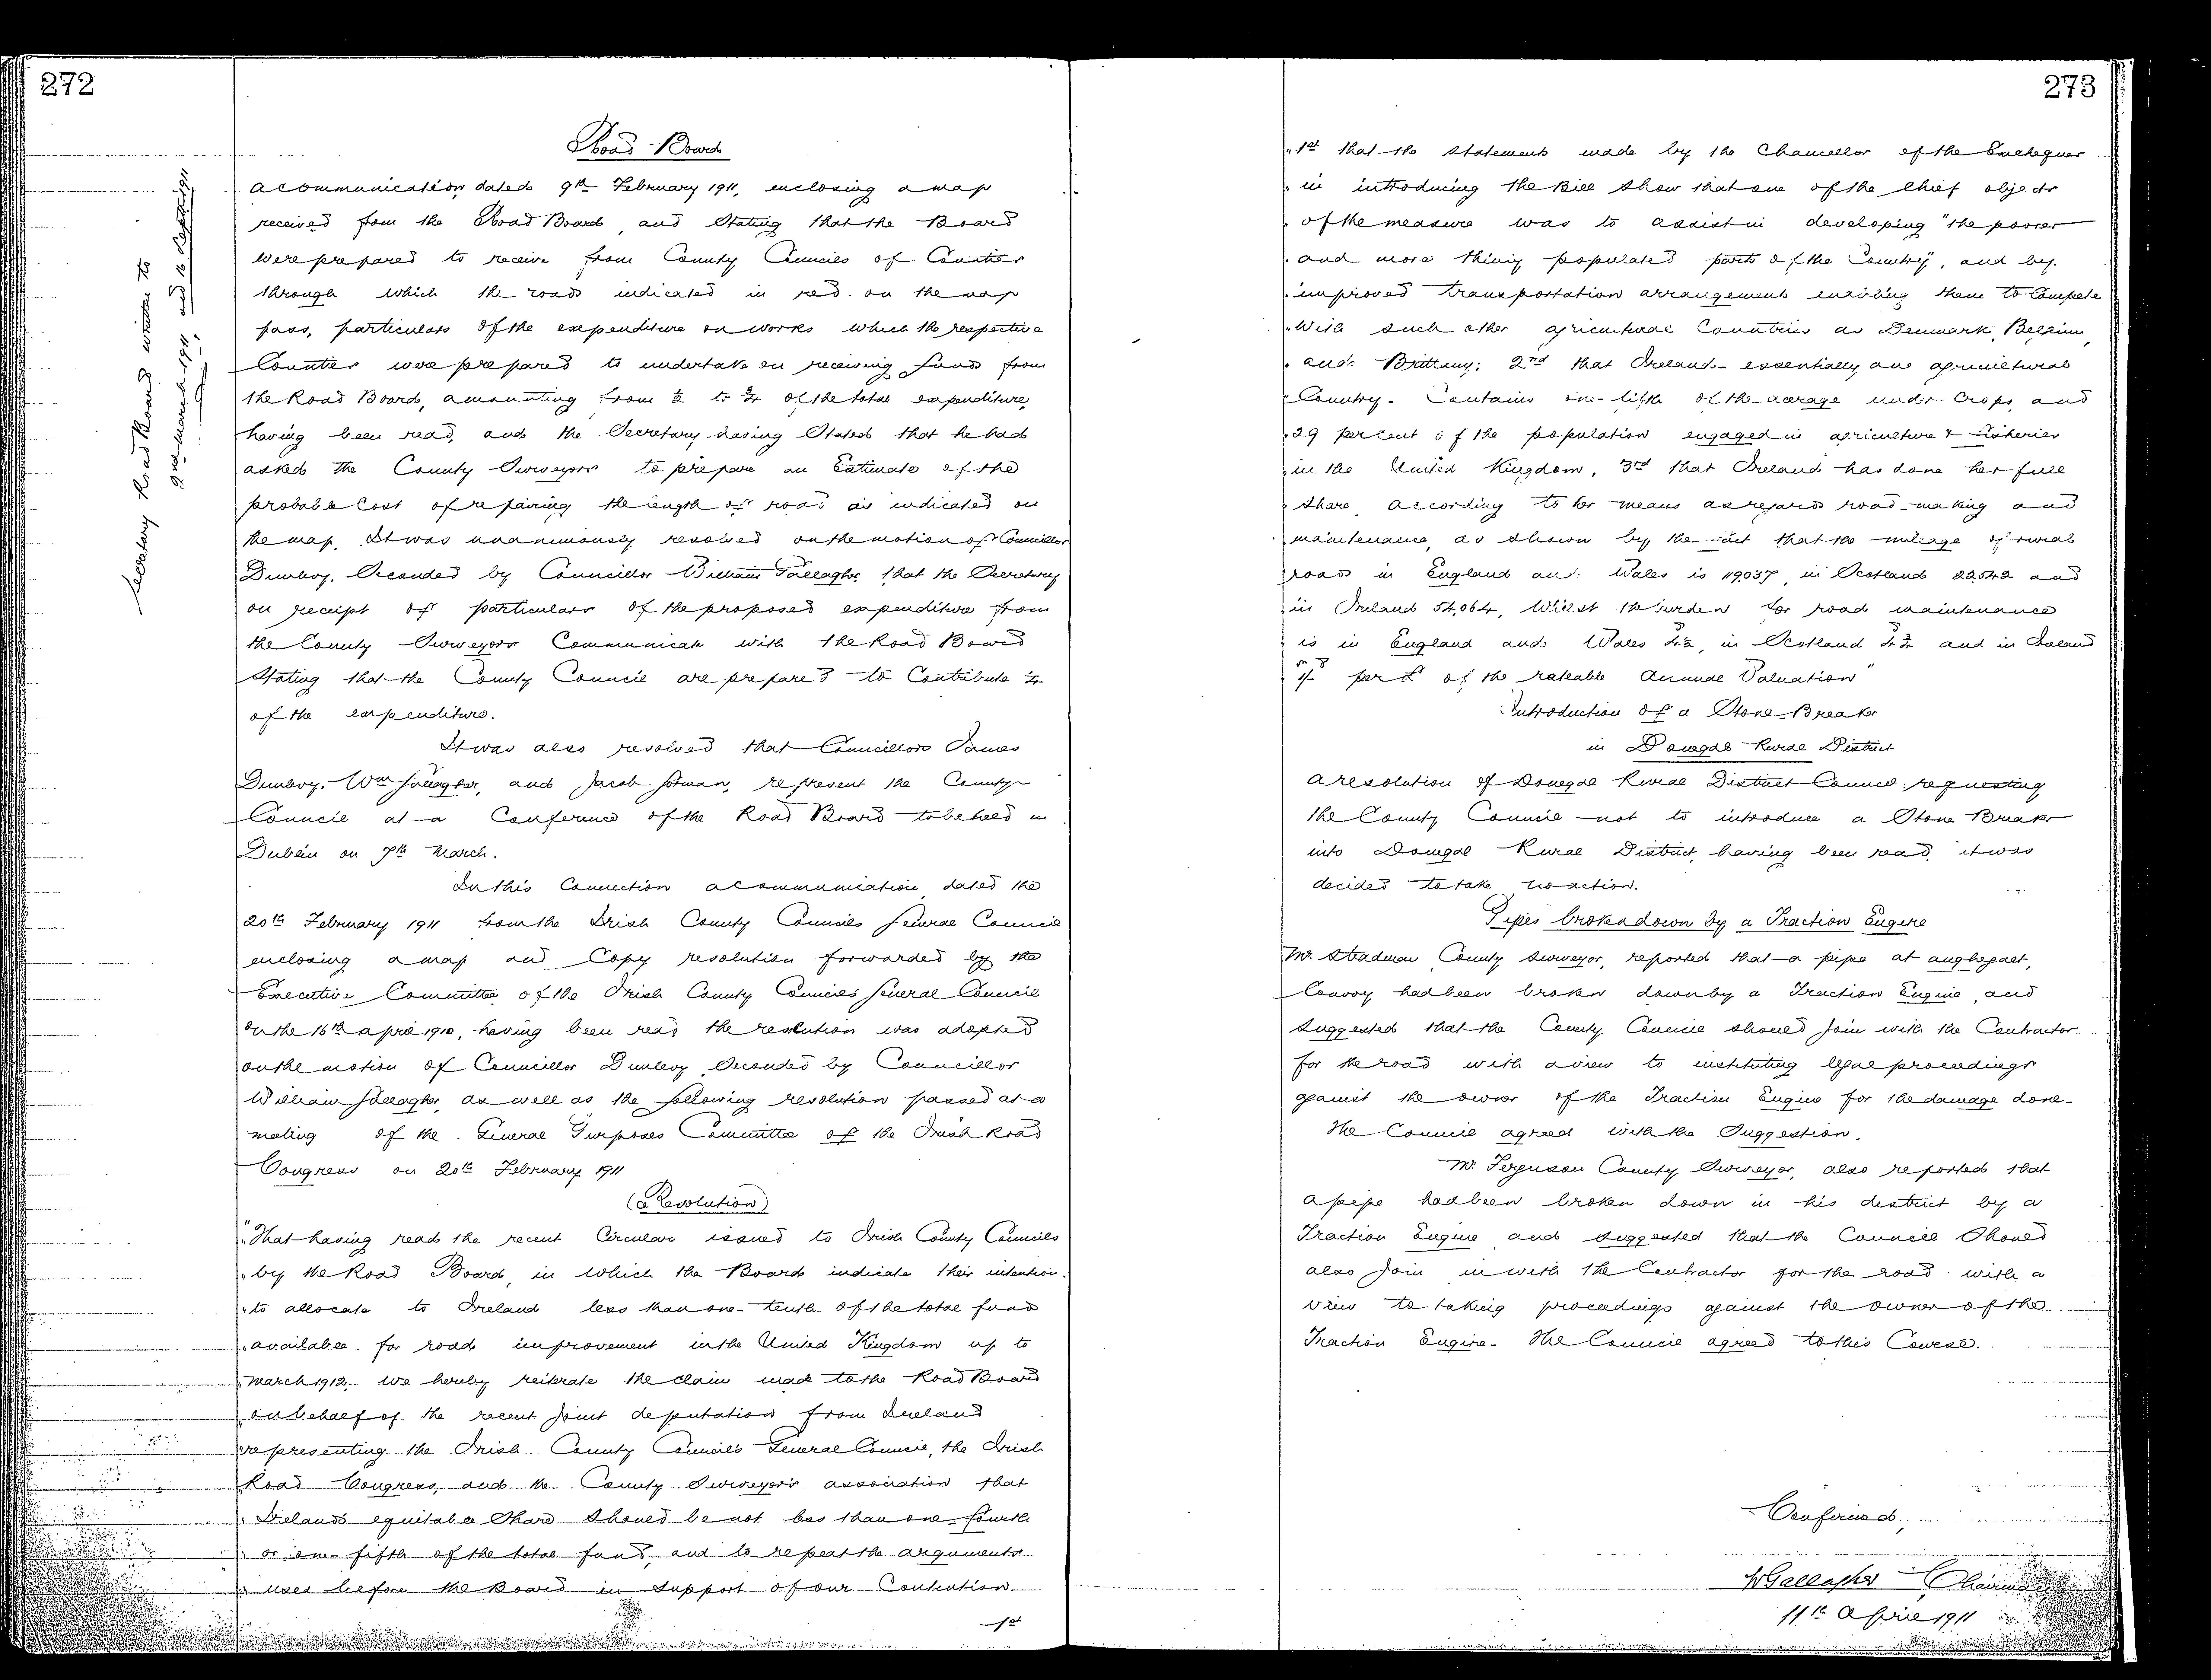 272
Secretary Road Board written to
2nd March 1911, and to
Road Board
A communication, dated 9th February 1911, enclosing a map
received from the Road Board, and Stating that the Board
were prepared to receive from County Councils of Counties
through which the roads indicated in red on the map
pass, particulars of the expenditure on works which the respective
Counties were prepared to undertake on receiving funds from
the Road Board, amounting from ½ to ¾ of the total expenditure,
having been read, and the Secretary having Stated that he had
asked the County Surveyors to prepare an Estimate of the
probable Cost of repairing the length of road as indicated on
the map. It was unanimously resolved on the motion of Councillor
Dunlevy, Seconded by Councillor William Gallagher, that the Secretary
on receipt of particulars of the proposed expenditure from
the County Surveyors Communicate with the Road Board
Stating that the County Council are prepared to Contribute ¼
of the expenditure.
It was also resolved that Councillors James
Dunlevy, Wm Gallagher, and Jacob Forman, represent the County
Council at a Conference of the Road Board to be held in
Dublin on 7th March.
In this Connection a communication dated the
20th February 1911 from the Irish County Councils General Council
enclosing a map and Copy resolution forwarded by the
Executive Committee of the Irish County Councils General Council
on the 16th April 1910, having been read the resolution was adopted
on the motion of Councillor Dunlevy Seconded by Councillor
William Gallagher, as well as the following resolution passed at a
meeting of the General Purposes Committee of the Irish Road
Congress on 20th February 1911
(Resolution)
"That having read the recent Circular issued to Irish County Councils
"by the Road Board, in which the Board indicate their intention
"to allocate to Ireland less than one-tenth of the total fund
"available for road improvement in the United Kingdom up to
"March 1912, we hereby reiterate the claim made to the Road Board
on behalf of the recent joint deputation from Ireland
"representing the Irish County Councils General Council, the Irish
Road Congress, and the County Surveyor's association that
"Ireland's equitable Share Should be not less than one-fourth
"or one-fifth of the total fund, and to repeat the arguments
"used before the Board in Support of our Contention
1st
273
"1st that the statements made by the Chancellor of the Exchequer
"in introducing the Bill show that one of the chief objects
"of the measure was to assist in developing "the poorer
"and more thinly populated parts of the Country", and by
"improved transportation arrangements enabling them to Compete
"with such other agricultural Countries as Denmark, Belgium,
"and Brittany; 2nd that Ireland - essentially an agricultural
"Country - Contains one-fifth of the acerage under Crops, and
"29 percent of the population engaged in agriculture & fisheries
"in the United Kingdom, 3rd that Ireland has done her full
"share according to her means as regards road-making and
"maintenance, as shown by the fact that the mileage of rural
"roads in England and Wales is 119,037, in Scotland 22,542 and
"in Ireland 54,064, Whilst the burden for road maintenance
is in England and Wales in Scotland and in Ireland
per £ of the rateable Annual Valuation"
Introduction of a Stone-Breaker
in Donegal Rural District
A resolution of Donegal Rural District Council requesting
the County Council not to introduce a Stone Breaker
into Donegal Rural District, having been read, it was
decided to take no action.
Pipes broken down by a Traction Engine
Mr. Steadman County Surveyor, reported that a pipe at
Convoy had been broken down by a Traction Engine, and
suggested that the County Council should join with the Contractor
for the road with a view to instituting legal proceedings
against the owner of the Traction Engine for the damage done -
The Council agreed with the Suggestion.
Mr. Ferguson County Surveyor, also reported that
a pipe had been broken down in his district by a
Traction Engine and suggested that the Council Should
also join in with the Contractor for the road with a
view to taking proceedings against the owner of the
Traction Engine - The Council agreed to this Course.
Confirmed,
W Gallagher Chairman
11th April 1911